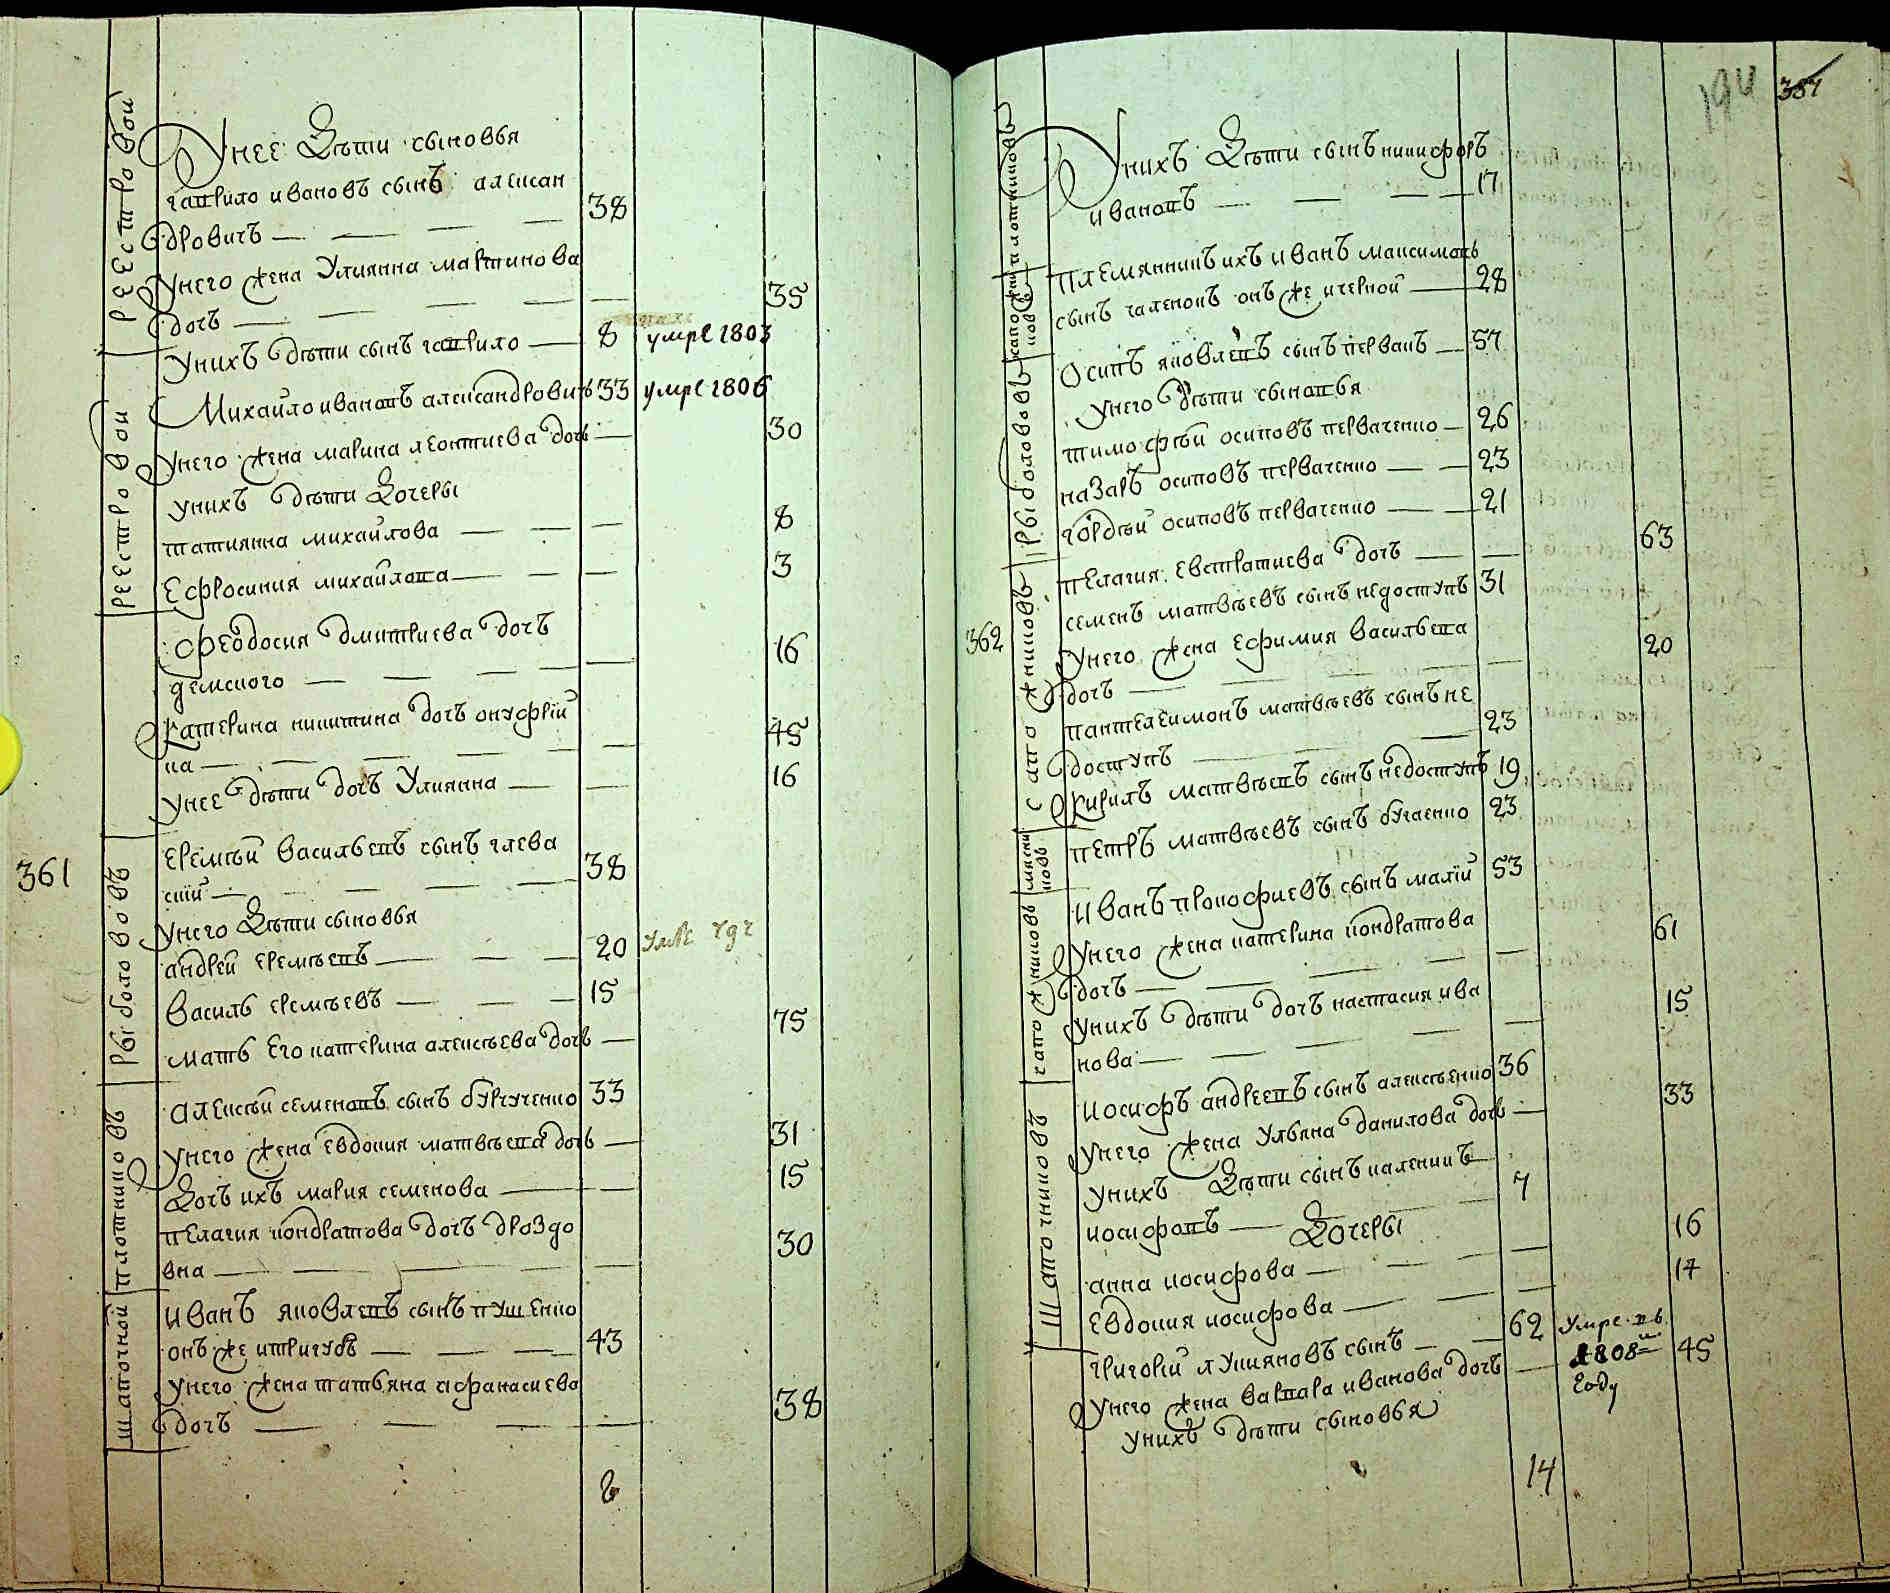 реестровои
У нее дѣти сыновья
гаврило ивановъ сынъ алексан
дровичъ — 38
У него жена Улиянна мартинова
дочъ — 35
У нихъ дѣти сынъ гаврило — 8 умре 1803
реестровои
Михайло ивановъ александровичъ 33 умре 1806
У него жена марина леонтиева дочь — 30
У нихъ дѣти дочеры
татиянна михайлова — 8
Ефросиния михайлова — 3
феодосия дмитриева дочъ
демского — 16
Катерина никитина дочъ онуфрій
ка — 45
У нее дѣти дочъ Улиянна — 16
361
рыболововъ
Еремѣй васильевъ сынъ глева
скій — 38
У него дѣти сыновья
андрей еремѣевъ — 20 умре
василь еремѣевъ — 15
мать его катерина алексѣева дочь — 75
плотниковъ
алексѣй семеновъ сынъ бургученко 33
У него жена Евдокия матвѣева дочь — 31
дочъ ихъ мария семенова — 15
пелагия кондратова дочъ дроздо
вна — 30
шапочной
иванъ яковлевъ сынъ пушенко
онъ же и тригубъ — 43
У него жена татьяна афанасиева
дочъ — 38
8
194 387
плотниковъ
У нихъ дѣти сынъ никифоръ
ивановъ — 17
сапожниковъ
племянникъ ихъ иванъ максимовъ
сынъ галенокъ онъ же и черной — 28
рыболововъ
Осипъ яковлевъ сынъ перванъ — 57
У него дѣти сыновья
тимофѣй осиповъ первaченко — 26
назаръ осиповъ перваченко — 23
гордѣй осиповъ перваченко — 21
пелагия евстратиева дочъ — 63
362
сапожниковъ
семенъ матвѣевъ сынъ недоступъ 31
У него жена Ефимия васильева
дочъ — 20
пантелеимонъ матвѣевъ сынъ не
доступъ — 23
Кирилъ матвѣевъ сынъ недоступъ 19
петръ матвѣевъ сынъ бугаенко 23
сапожниковъ
иванъ прокофиевъ сынъ малій 53
У него жена катерина кондратова
дочъ — 61
У нихъ дѣти дочъ настасия ива
нова — 15
Шапочниковъ
иосифъ андреевъ сынъ алексѣенко 36
У него жена Ульяна данилова дочь — 33
У нихъ дѣти сынъ каленикъ
иосифовъ — 7
дочеры
анна иосифова — 16
Евдокия иосифова — 14
григорій лукияновъ сынъ — 62 умре въ
1808м году
У него жена варвара иванова дочъ — 45
У нихъ дѣти сыновья
14